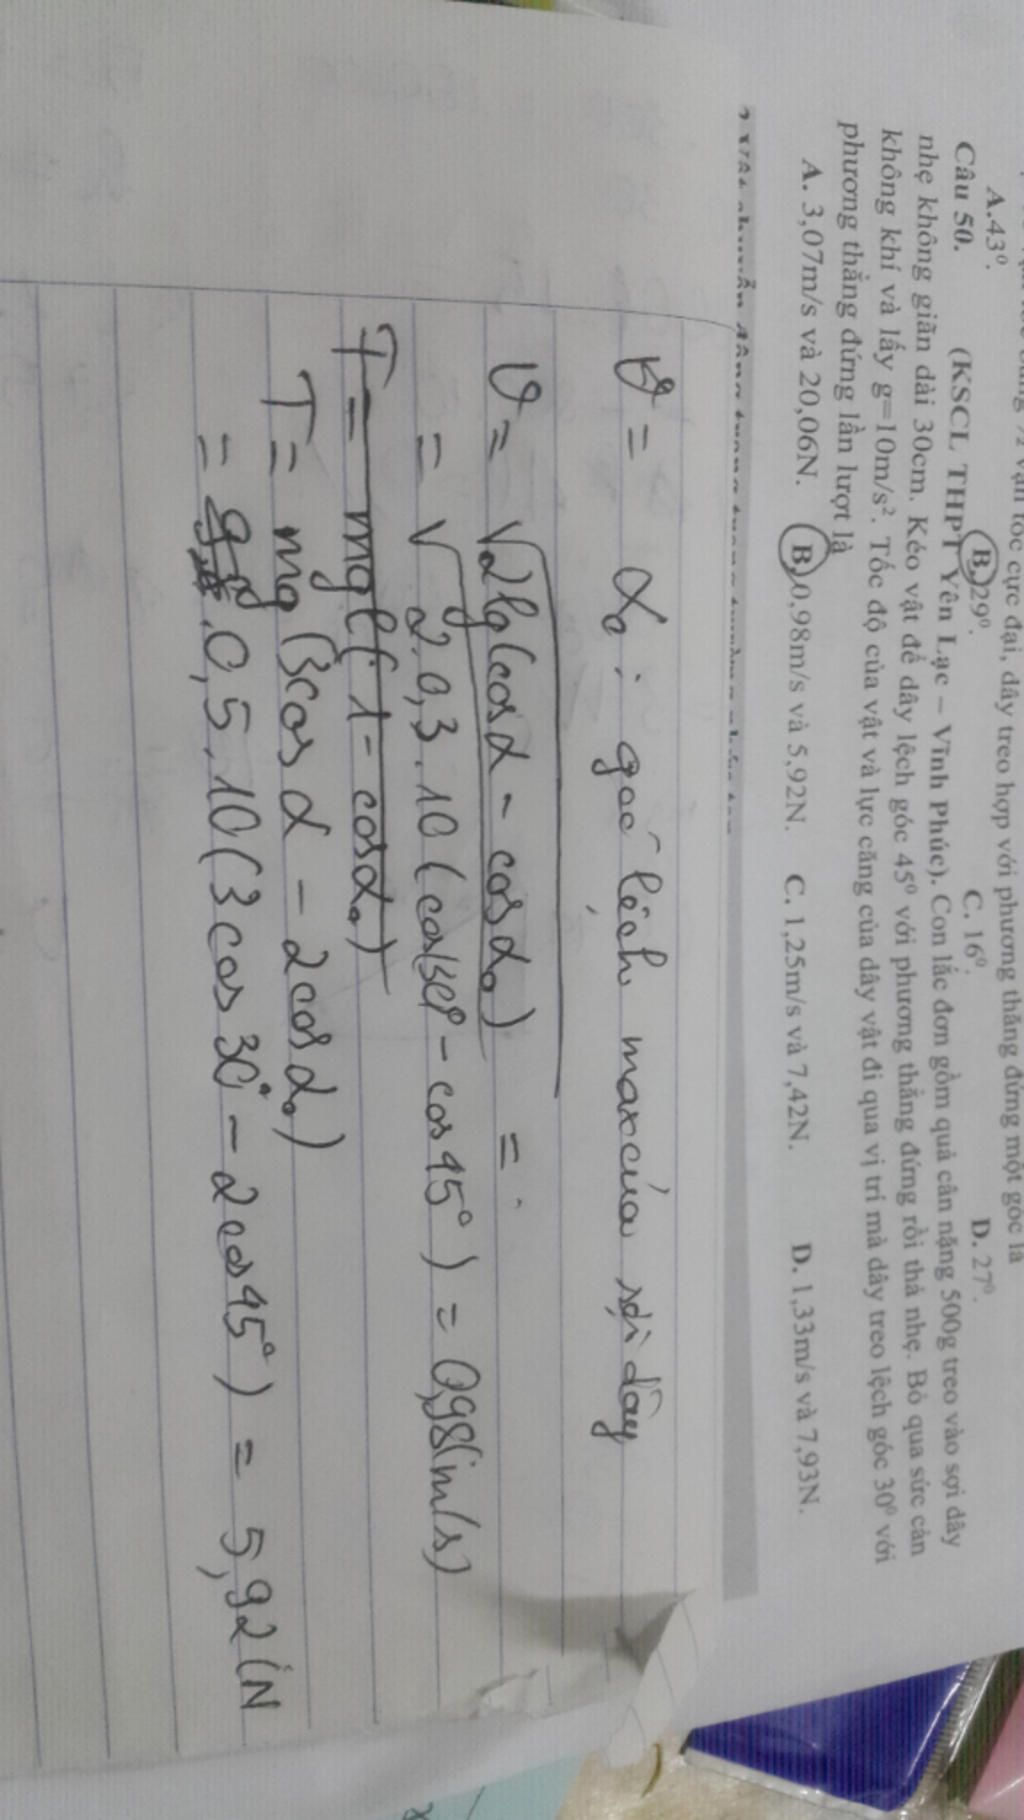 vận tốc cực đại, dây treo hợp với phương thẳng đứng một góc là
A.43⁰. B.29⁰. C. 16⁰. D. 27⁰.
Câu 50. (KSCL THPT Yên Lạc – Vĩnh Phúc). Con lắc đơn gồm quả cân nặng 500g treo vào sợi dây
nhẹ không giãn dài 30cm. Kéo vật để dây lệch góc 45⁰ với phương thẳng đứng rồi thả nhẹ. Bỏ qua sức cản
không khí và lấy g=10m/s². Tốc độ của vật và lực căng của dây vật đi qua vị trí mà dây treo lệch góc 30⁰ với
phương thẳng đứng lần lượt là
A. 3,07m/s và 20,06N. B. 0,98m/s và 5,92N. C. 1,25m/s và 7,42N. D. 1,33m/s và 7,93N.
v = α₀ : góc lệch max của sợi dây
v = √2lg(cosα - cosα₀) =
= √2.0,3.10(cos30⁰ - cos45°) = 0,98(m/s)
T = mgl(1 - cosα₀)
T = mg(3cosα - 2cosα₀)
= 0,5.10(3cos30° - 2cos45°) = 5,92(N